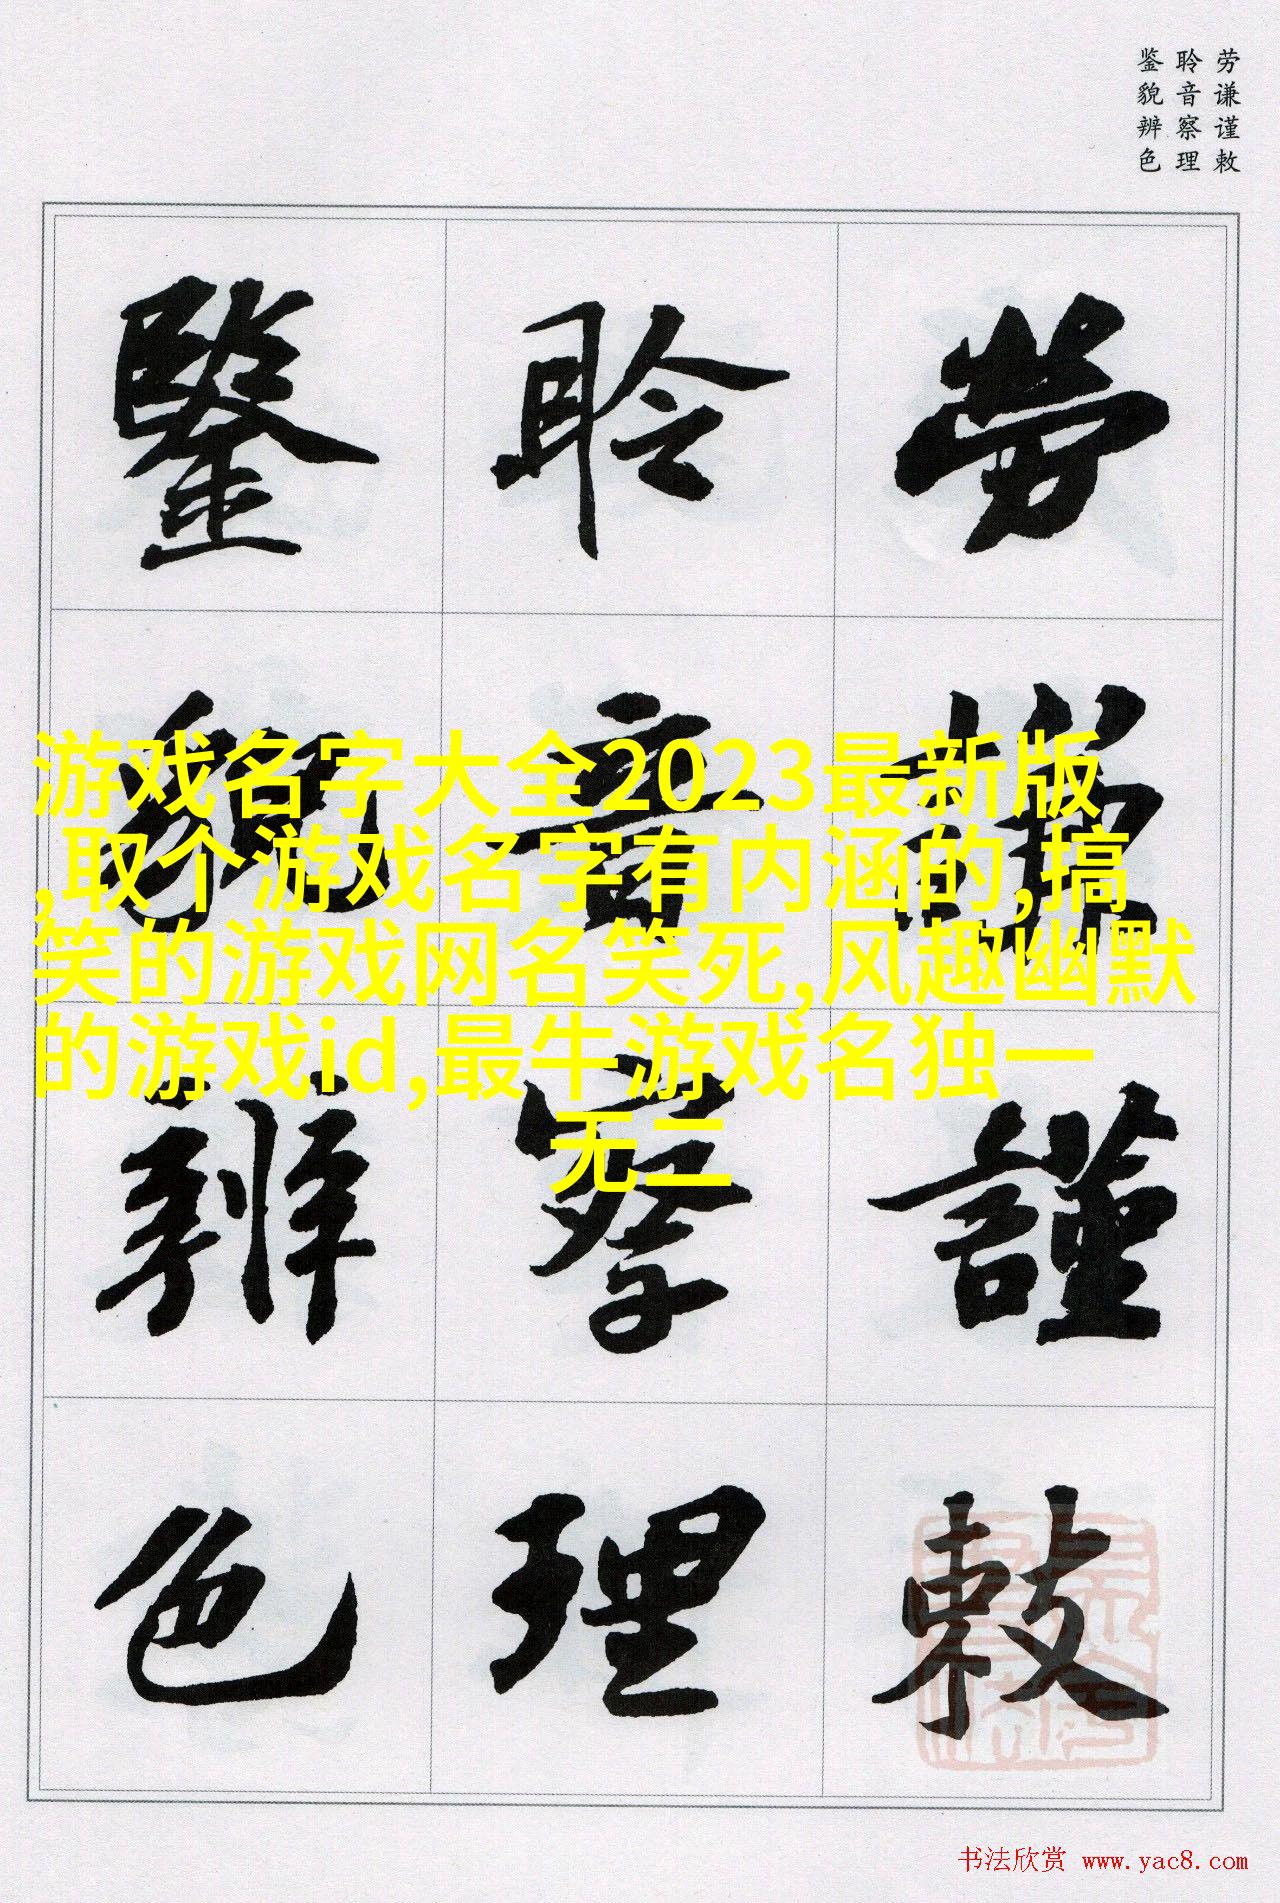 劳谦谨敕
聆音察理
鉴貌辨色
勞謙謹敕
聆音察理
鑒貌辨色
游戏名字大全2023最新版
,取个游戏名字有内涵的,搞
笑的游戏网名笑死,风趣幽默
的游戏id,最牛游戏名独一
无二
书法欣赏 www.yac8.com